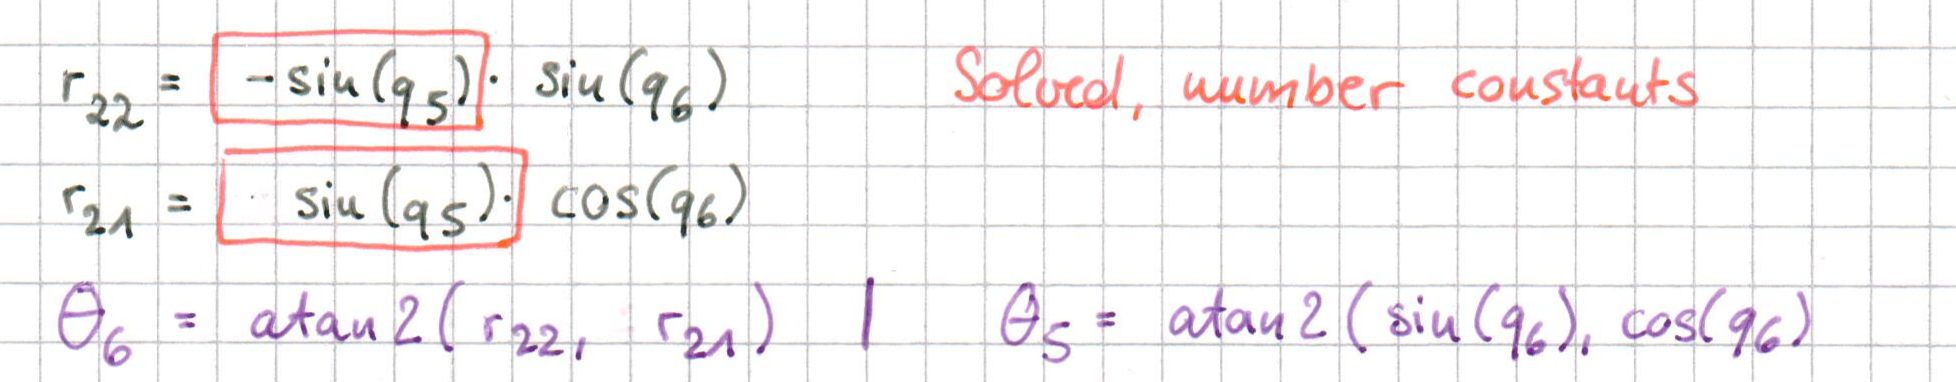 r₂₂ = -sin(q₅) · sin(q₆) Solved, number constants
r₂₁ = sin(q₅) · cos(q₆)
θ₆ = atan2(r₂₂, r₂₁) | θ₅ = atan2(sin(q₆), cos(q₆)